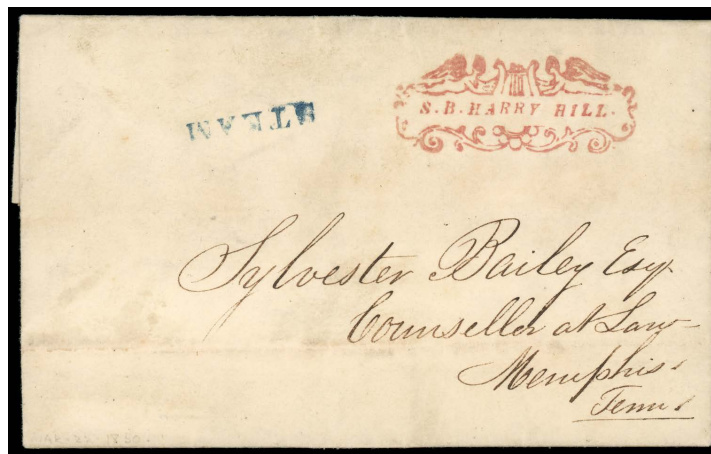 S.B. HARRY HILL.
STEAM
Sylvester Bailey Esq.
Counsellor at Law
Memphis
Tenn